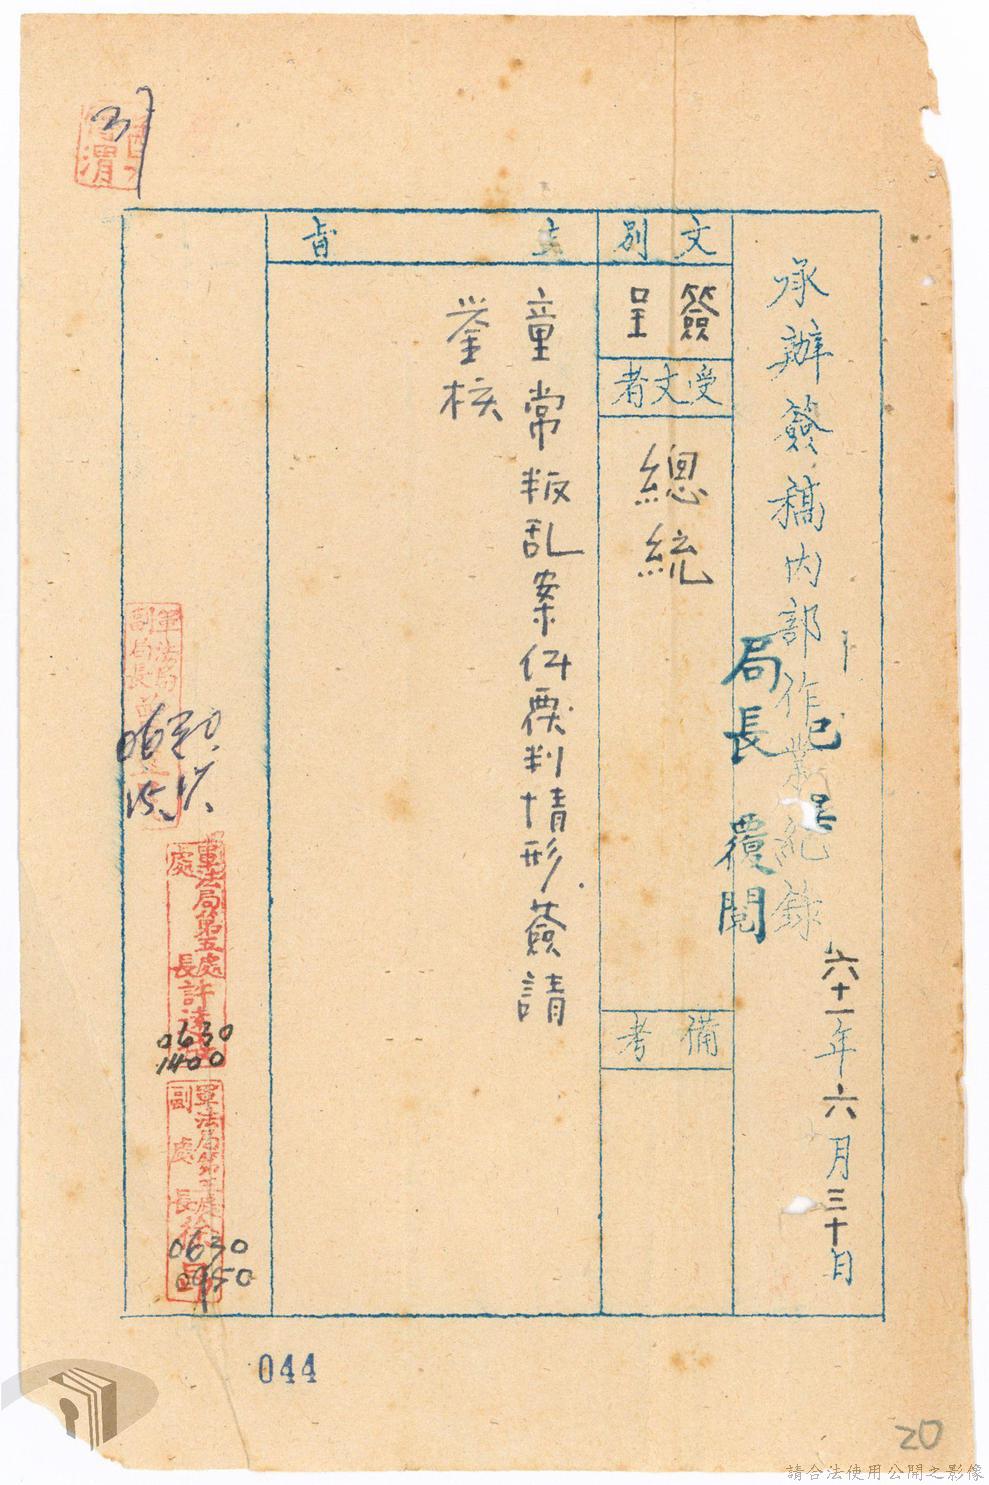 承辦簽稿內部作業紀錄
六十一年六月三十日
局長已呈
覆閱
文別
簽呈
受文者
總統
備考
主旨
童常叛乱案件覆判情形簽請
鑒核
軍法局
副局長
軍法局第五處
處長許
0630
1400
軍法局第五處
副處長徐
0630
0950
044
20
請合法使用公開之影像